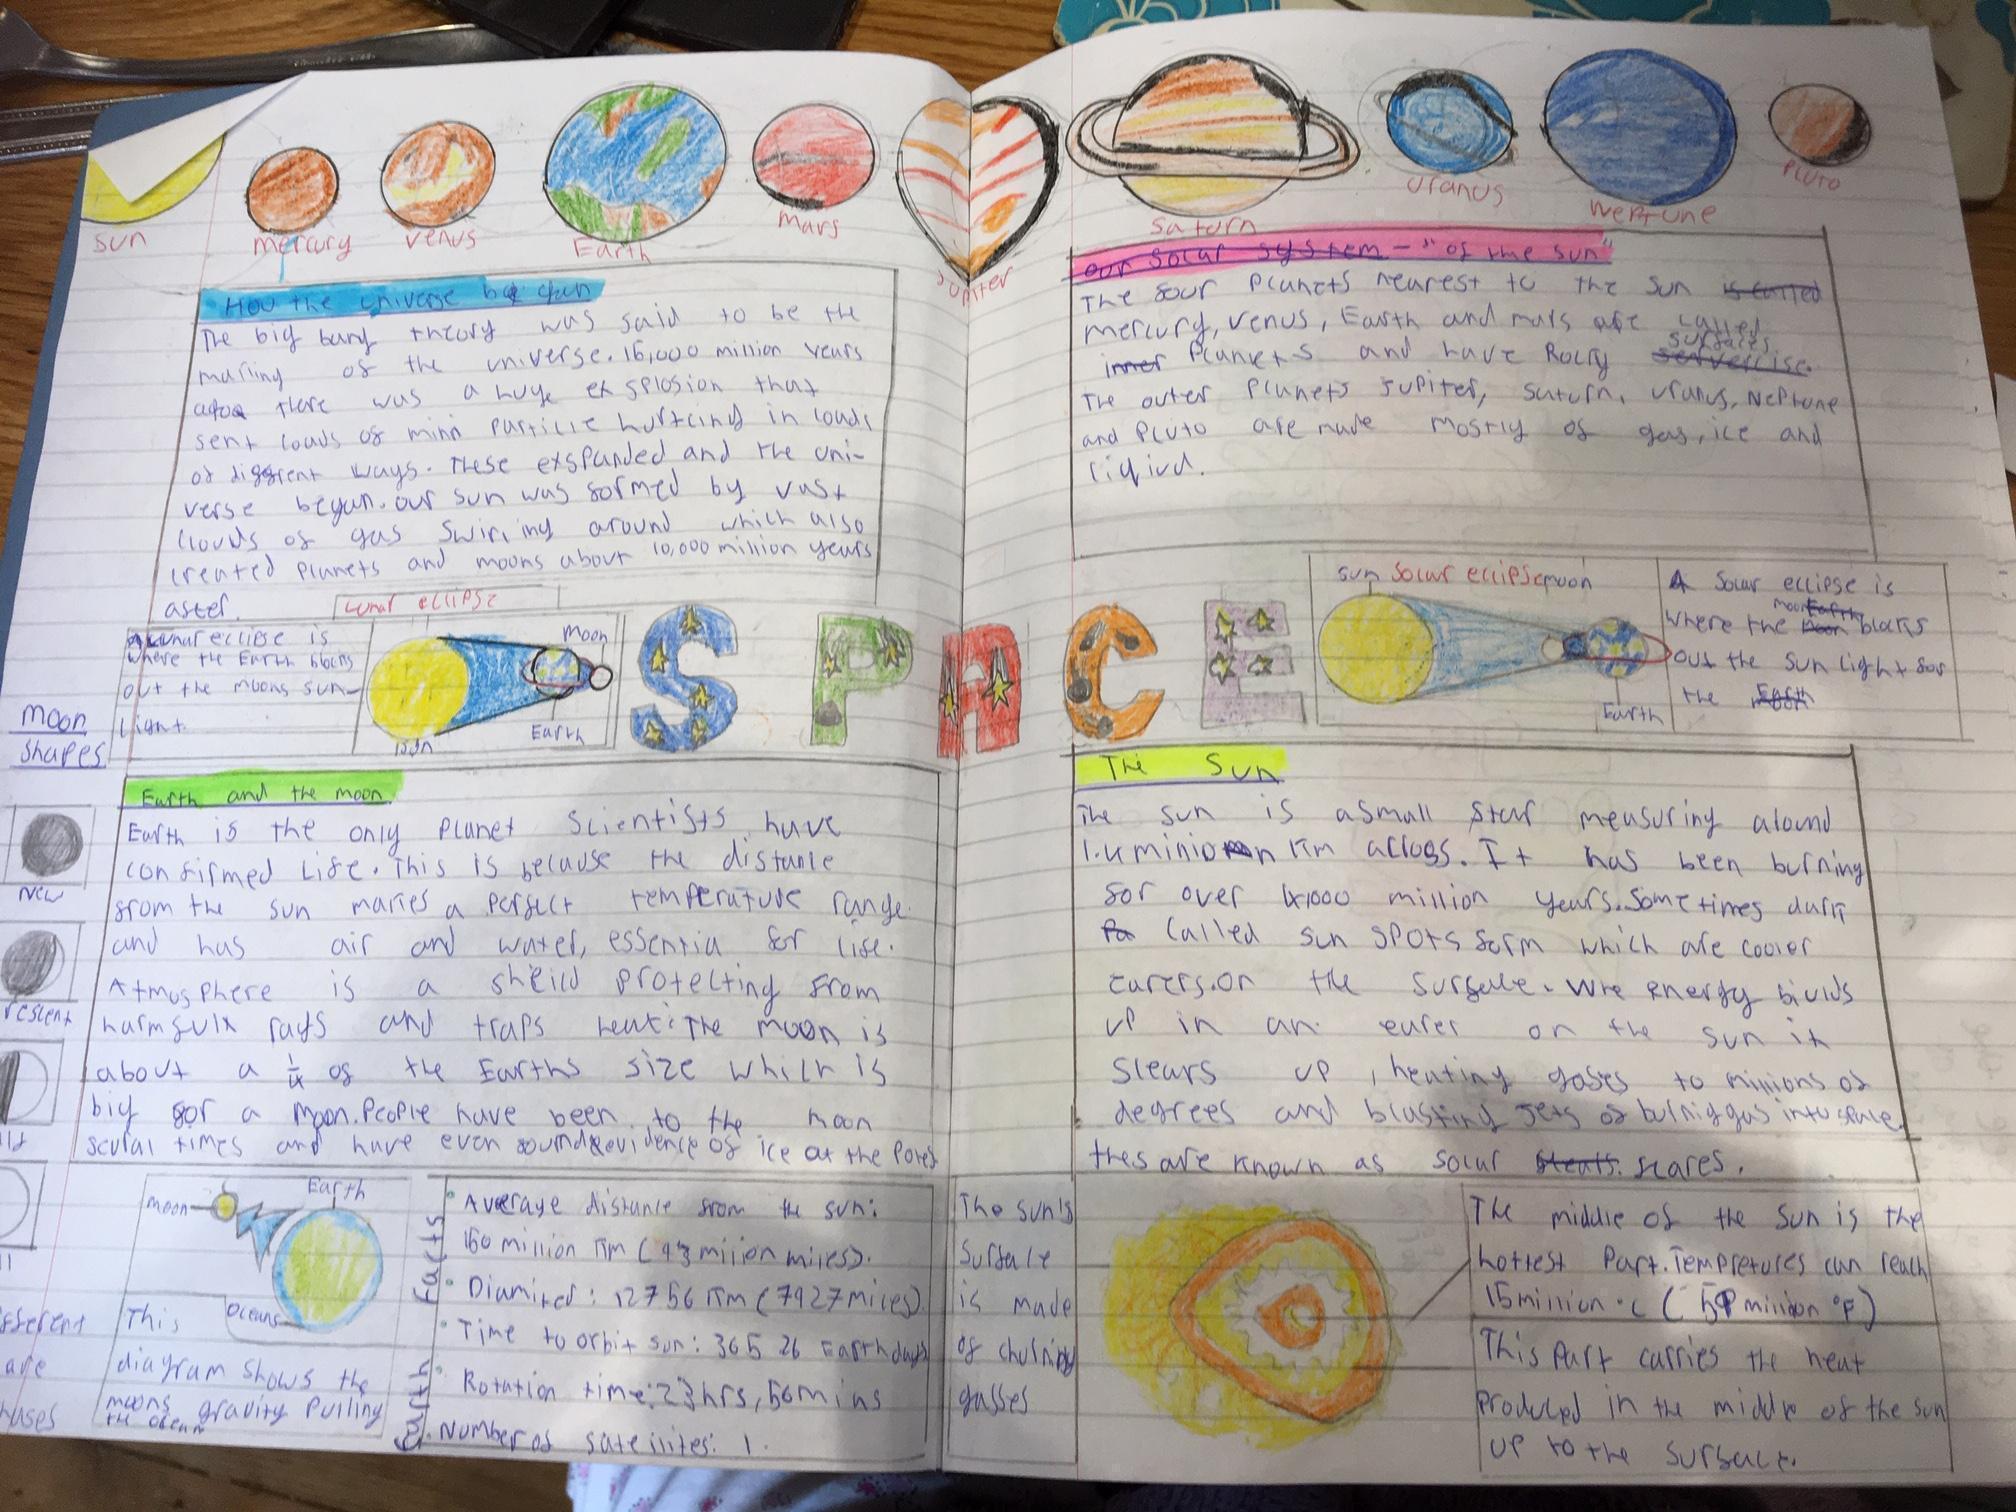 sun
mercury
venus
Earth
mars
Jupiter
saturn
uranus
Neptune
Pluto
How the universe began
The big bang theory was said to be the
making of the universe. 15,000 million years
ago there was a huge ex splosion that
sent loads of mini particle hurtling in loads
of different ways. These exspanded and the uni-
verse began. our sun was formed by vast
clouds of gas swirling around which also
created planets and moons about 10,000 million years
after.
our solar system - "of the sun"
The four planets nearest to the sun is called
mercury, venus, Earth and mars are called
inner planets and have Rocky surfaces
The outer planets Jupiter, saturn, uranus, Neptune
and Pluto are made mostly of gas, ice and
liqiud.
Lunar eclipse
A Lunar eclipse is
where the Earth blocks
out the moons sun-
light.
Moon
Earth
sun
SPACE
sun solar eclipse moon
Earth
A solar eclipse is
where the moon blocks
out the sun light for
the Earth
moon
shapes
New
rescent
fferent
are
hases
Earth and the moon
Earth is the only planet scientists have
confirmed life. This is because the distance
from the sun makes a perfect temperature range
and has air and water, essentia for life.
Atmosphere is a sheild protecting from
harmful rays and traps heat. The moon is
about a 1/4 of the Earths size which is
big for a moon. People have been to the moon
sevral times and have even found evidence of ice at the poles
The Sun
The sun is a small star measuring around
1.4 minion km across. It has been burning
for over 4,000 million years. Sometimes dark
called sun spots form which are cooler
earers. on the surface. Wne energy biulds
up in an earer on the sun it
flears up, heating gases to millions of
degrees and blasting jets of burnig gas into space.
thes are known as solar flares.
moon
Earth
oceans
This
diagram shows the
moons gravity pulling
the ocean
Earth facts
• Average distance from the sun:
150 million km (93 milion miles).
• Diamiter: 12756 km (7927 miles)
• Time to orbit sun: 365 26 Earth days
• Rotation time: 23 hrs, 56 mins
• Number of satellites: 1.
The sun's
surface
is made
of churning
gasses
The middle of the sun is the
hottest part. Tempretures can reach
15 million °c ( million °F)
This part carries the heat
produced in the middle of the sun
up to the surface.